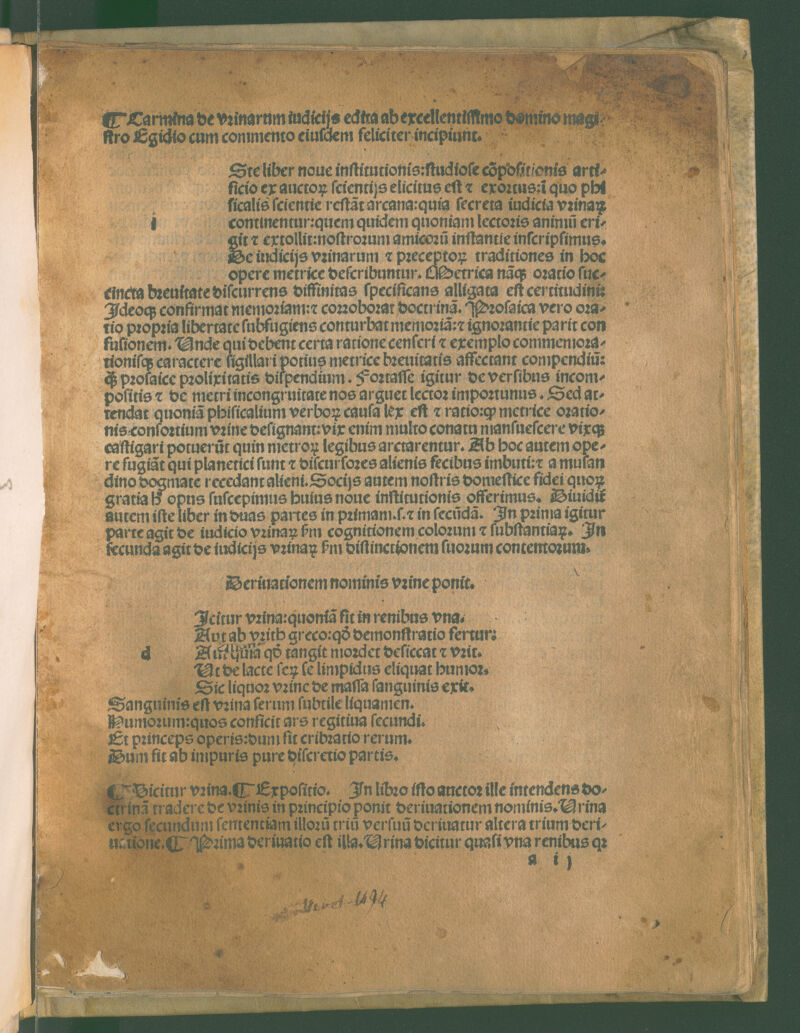 ¶ Carmina de vrinarum iudicijs edita ab excellentissimo domino magi-
stro Egidio cum commento eiusdem feliciter incipiunt.
Ste liber noue institutionis:studiose cõpositionis arti-
ficio ex auctoꝝ scientijs elicitus est ⁊ exortus:ĩ quo phi
sicalis scientie restãt arcana:quia secreta iudicia vrinaꝝ
i continentur:quem quidem quoniam lectoris animũ eri-
git ⁊ extollit:nostrorum amicorũ instantie inscripsimus.
De iudicijs vrinarum ⁊ preceptoꝝ traditiones in hoc
opere metrice describuntur. Metrica nãqꝫ oratio suc-
cincta breuitate discurrens diffinitas specificans alligata est certitudini:
Ideoqꝫ confirmat memoriam:⁊ corroborat doctrinã. Prosaica vero ora-
tio propria libertate subfugiens conturbat memoriã:⁊ ignorantie parit con
fusionem. Unde qui debent certa ratione censeri ⁊ exemplo commemora-
tionisqꝫ caractere sigillari potius metrice breuitatis affectant compendiũ:
ꝙ̃ prosaice prolixitatis dispendium. Fortasse igitur de versibus incom-
positis ⁊ de metri incongruitate nos arguet lector importunus. Sed at-
tendat quoniã phisicalium verboꝝ causa lex est ⁊ ratio:ꝙ metrice oratio-
nis consortium vrine designant:vix enim multo conatu mansuescere vixqꝫ
castigari potuerũt quin metroꝝ legibus arctarentur. Ab hoc autem ope-
re fugiãt qui planetici sunt ⁊ discursores alienis fecibus imbuti:⁊ a musan
dino dogmate recedant alieni. Socijs autem nostris domestice fidei quoꝝ
gratia hͦ opus suscepimus huius noue institutionis offerimus. Diuidit̃
autem iste liber in duas partes in primam.s.⁊ in secũdã. In prima igitur
parte agit de iudicio vrinaꝝ ẜm cognitionem colorum ⁊ substantiaꝝ. In
secunda agit de iudicijs vrinaꝝ ẜm distinctionem suorum contentorum.
Deriuationem nominis vrine ponit.
Icitur vrina:quoniã fit in renibus vna.
Aut ab vrith greco:qd̛ demonstratio fertur:
d qd̛ tangit mordet desiccat ⁊ vrit.
Ut de lacte seꝝ se limpidus eliquat humor.
Sic liquor vrine de massa sanguinis exit.
Sanguinis est vrina serum subtile liquamen.
Humorum:quos conficit ars regitiua secundi.
Et princeps operis:dum fit cribratio rerum.
Dum fit ab impuris pure discretio partis.
¶ Dicitur vrina.¶ Expositio. In libro isto auctor ille intendens do-
ctrinã tradere de vrinis in principio ponit deriuationem nominis.Urina
ergo secundum sententiam illorũ triũ versuũ deriuatur altera trium deri-
uatione.¶ Prima deriuatio est illa.Urina dicitur quasi vna renibus qꝛ
a ij